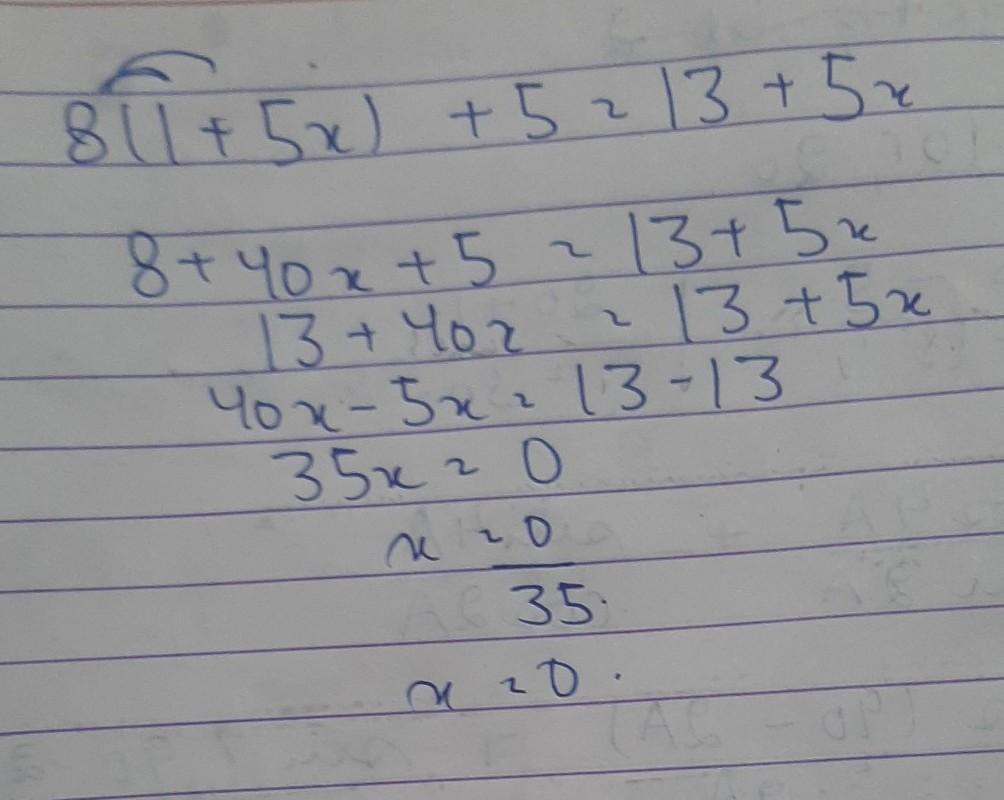 8(1 + 5x) + 5 = 13 + 5x
8 + 40x + 5 = 13 + 5x
13 + 40x = 13 + 5x
40x - 5x = 13 - 13
35x = 0
x = 0
35
x = 0